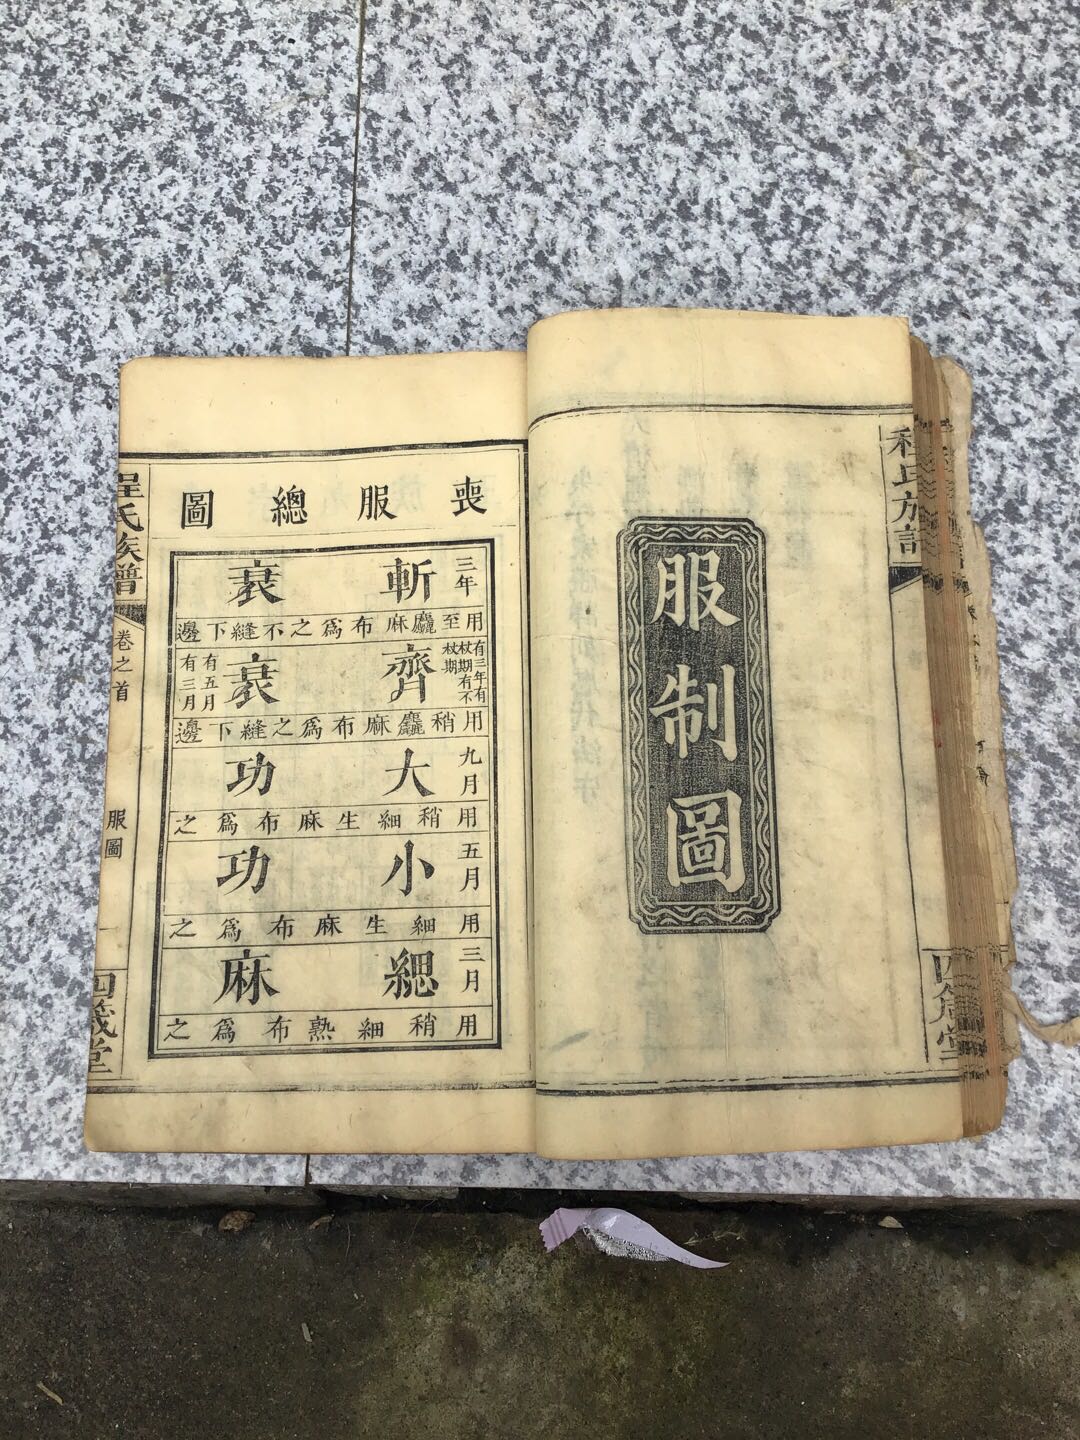 程氏族譜
四箴堂
服制圖
喪服總圖
三年
斬衰
用至麤麻布為之不縫下邊
有三年有杖期有不杖期
齊衰
有五月
有三月
用稍麤麻布為之縫下邊
九月
大功
用稍細生麻布為之
五月
小功
用細生麻布為之
三月
緦麻
用稍細熟布為之
程氏族譜
卷之首
服圖
一
四箴堂